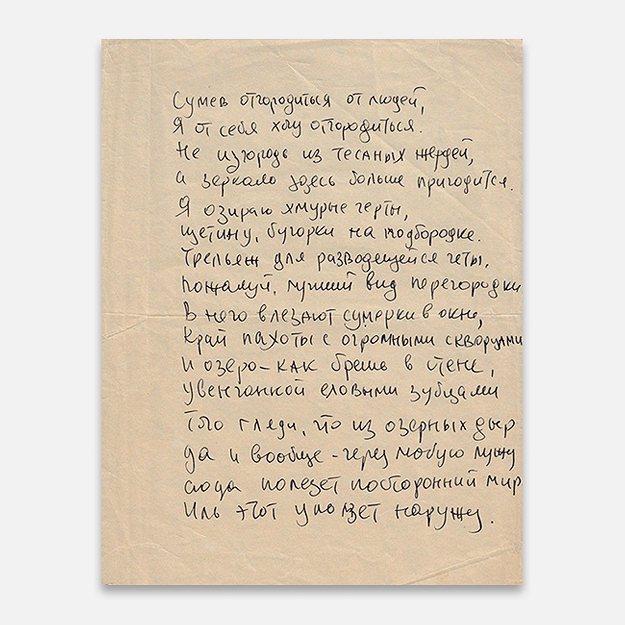 Сумев отгородиться от людей,
Я от себя хочу отгородиться.
Не изгородь из тесаных жердей,
а зеркало здесь больше пригодится.
Я озираю хмурые черты,
щетину, бугорки на подбородке.
Трельяж для разводящейся четы,
пожалуй, лучший вид перегородки
В него влезают сумерки в окне,
Край пахоты с огромными скворцами
И озеро – как брешь в стене,
увенчанной еловыми зубцами
Того гляди, что из озерных дыр
да и вообще – через любую лужу
сюда полезет посторонний мир
Иль этот уползет наружу.